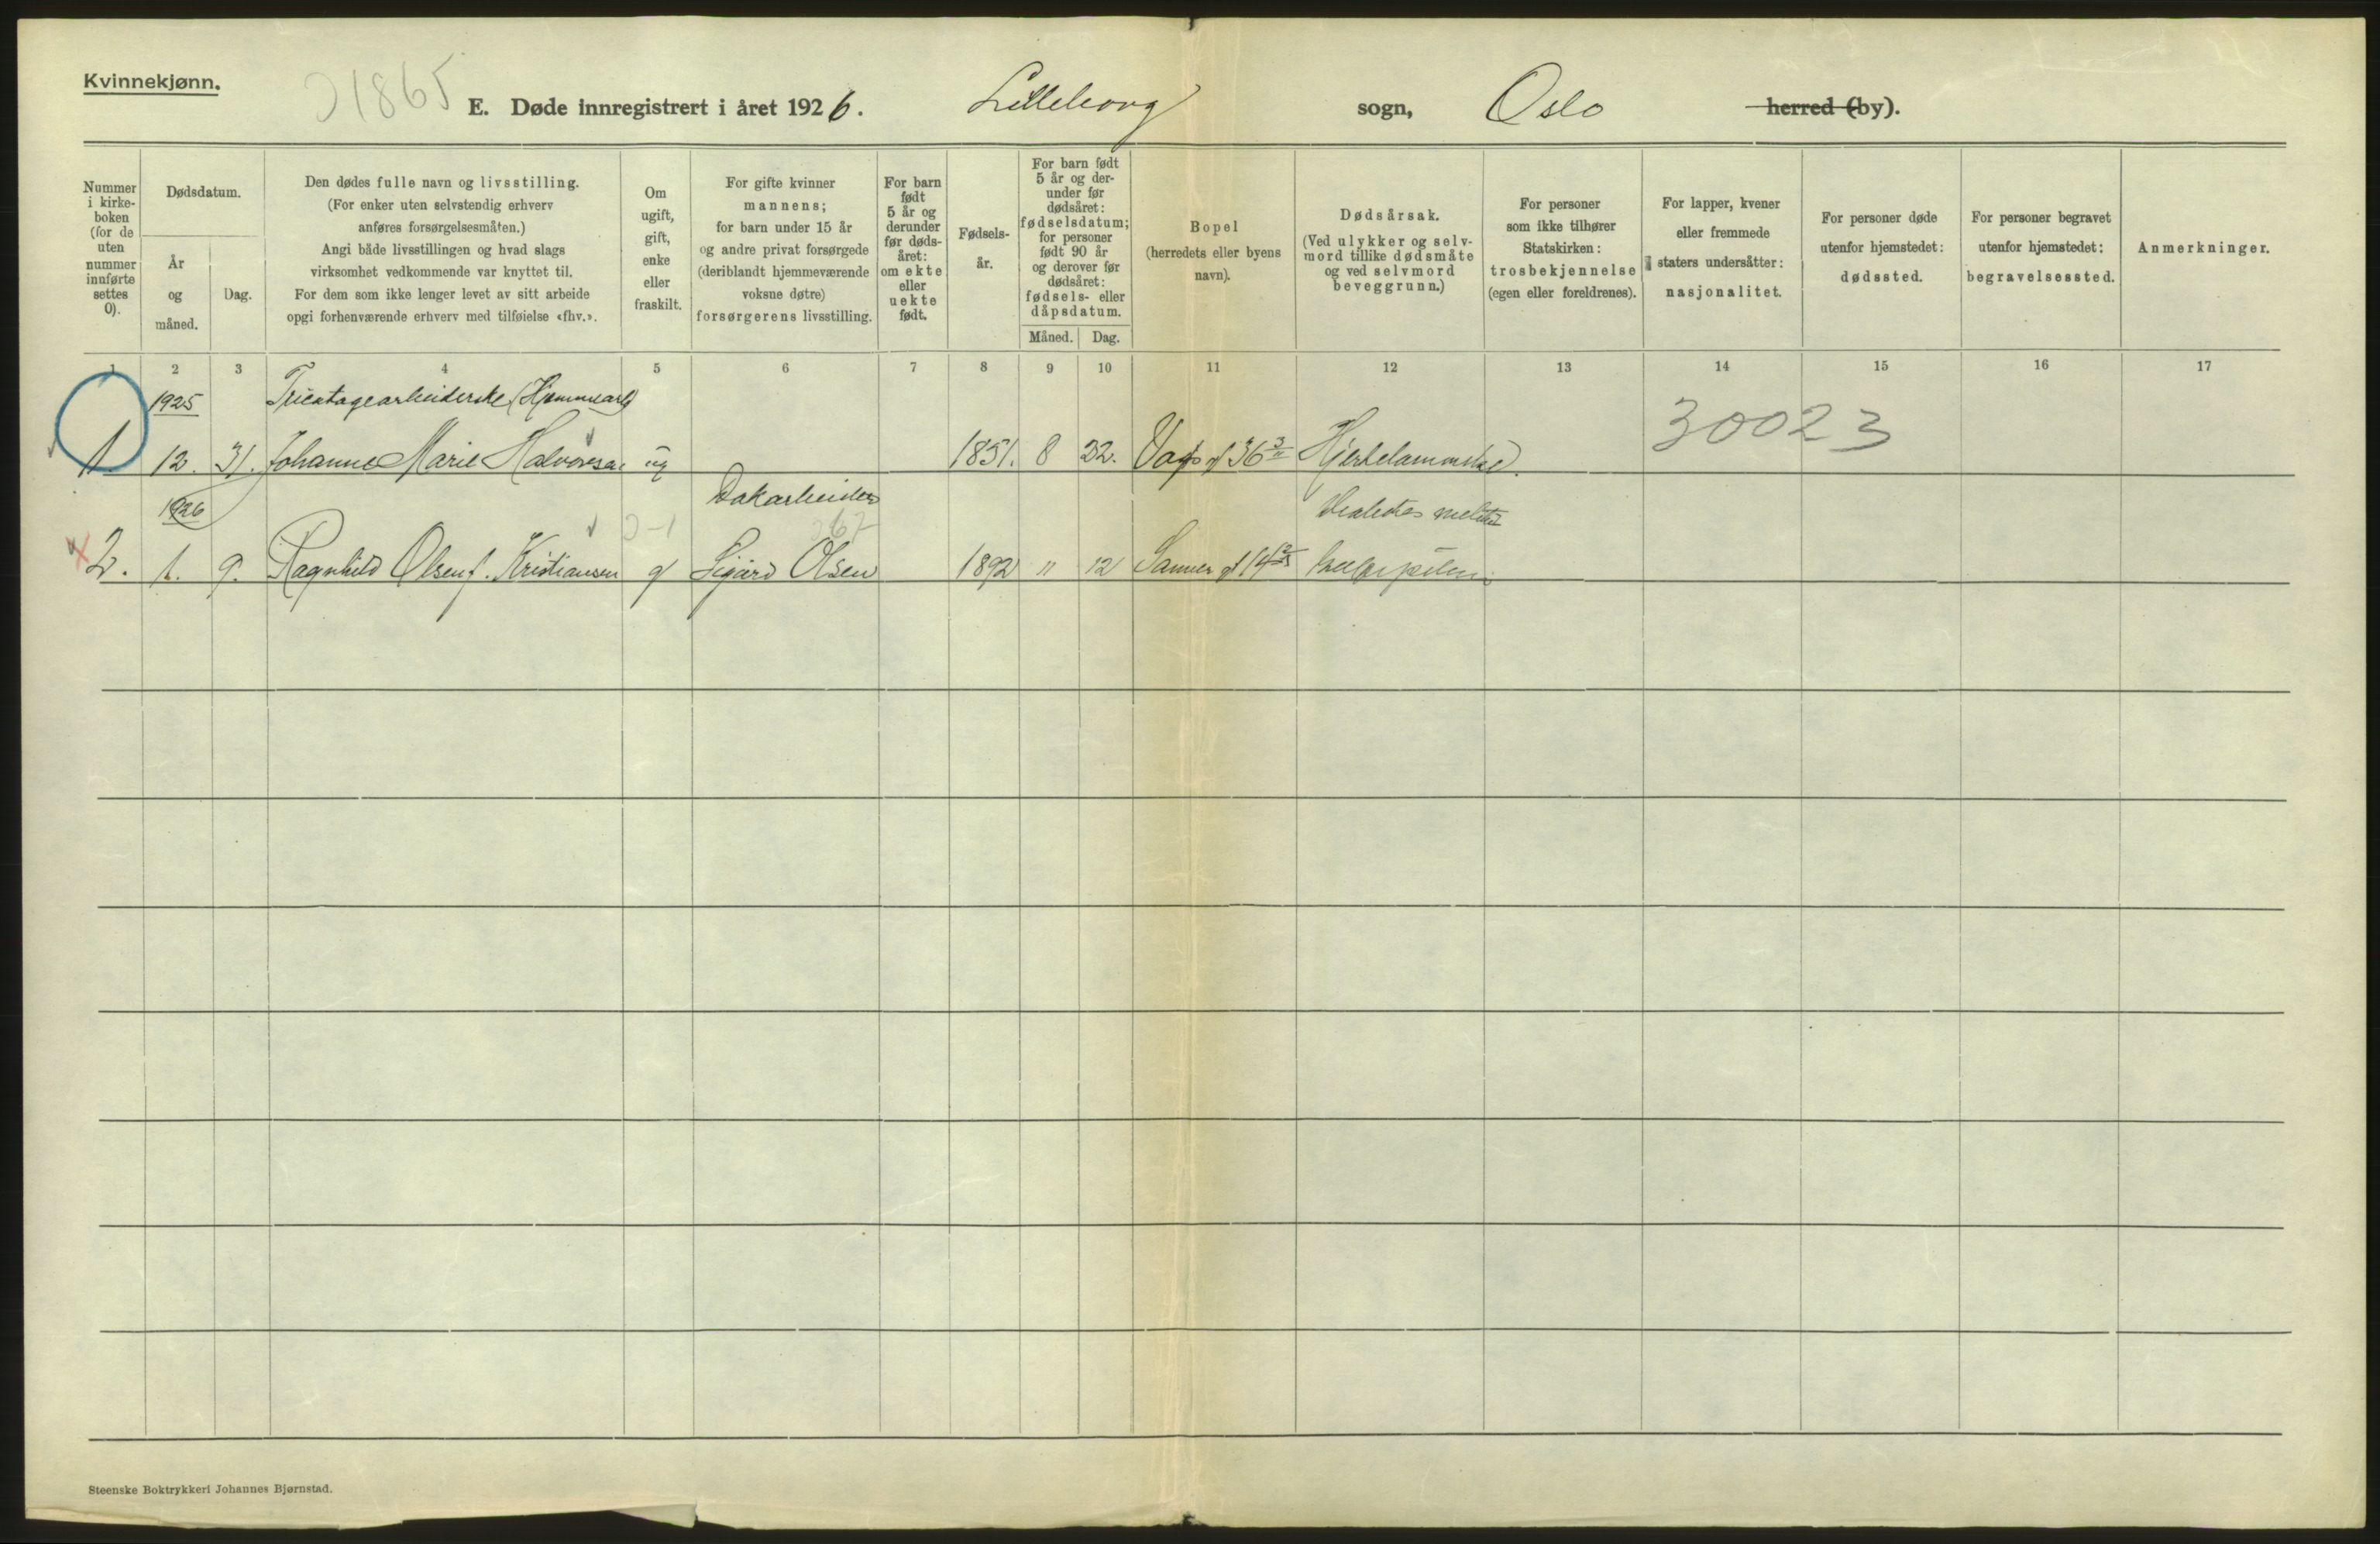 Kvinnekjønn.
1865
E. Døde innregistrert i året 1926. Lilleborg sogn, Oslo herred (by).
Nummer i kirkeboken (for de uten nummer innførte settes 0).
Dødsdatum.
År og måned.
Dag.
Den dødes fulle navn og livsstilling.
(For enker uten selvstendig erhverv
anføres forsørgelsesmåten.)
Angi både livsstillingen og hvad slags
virksomhet vedkommende var knyttet til.
For dem som ikke lenger levet av sitt arbeide
opgi forhenværende erhverv med tilføielse «fhv.».
Om
ugift,
gift,
enke
eller
fraskilt.
For gifte kvinner
mannens;
for barn under 15 år
og andre privat forsørgede
(deriblandt hjemmeværende
voksne døtre)
forsørgerens livsstilling.
For barn
født
5 år og
derunder
før døds-
året:
om ekte
eller
uekte
født.
Fødsels-
år.
For barn født
5 år og der-
under før
dødsåret:
fødselsdatum;
for personer
født 90 år
og derover før
dødsåret:
fødsels- eller
dåpsdatum.
Måned. Dag.
Bopel
(herredets eller byens
navn).
Dødsårsak.
(Ved ulykker og selv-
mord tillike dødsmåte
og ved selvmord
beveggrunn.)
For personer
som ikke tilhører
Statskirken:
trosbekjennelse
(egen eller foreldrenes).
For lapper, kvener
eller fremmede
staters undersåtter:
nasjonalitet.
For personer døde
utenfor hjemstedet:
dødssted.
For personer begravet
utenfor hjemstedet:
begravelsessted.
Anmerkninger.
1 2 3 4 5 6 7 8 9 10 11 12 13 14 15 16 17
1925 Tricotagearbeiderske (Hjemmearb
30023
1. 12. 31. Johanne Marie Halvorsen ug 1851. 8 22. 36 Hjertelammelse
1926 Dokarbeider
267
2. 1. 9. Ragnhild Olsen f. Kristiansen g Sigurd Olsen 1892 11 12 Sanner gt 14
Steenske Boktrykkeri Johannes Bjørnstad.